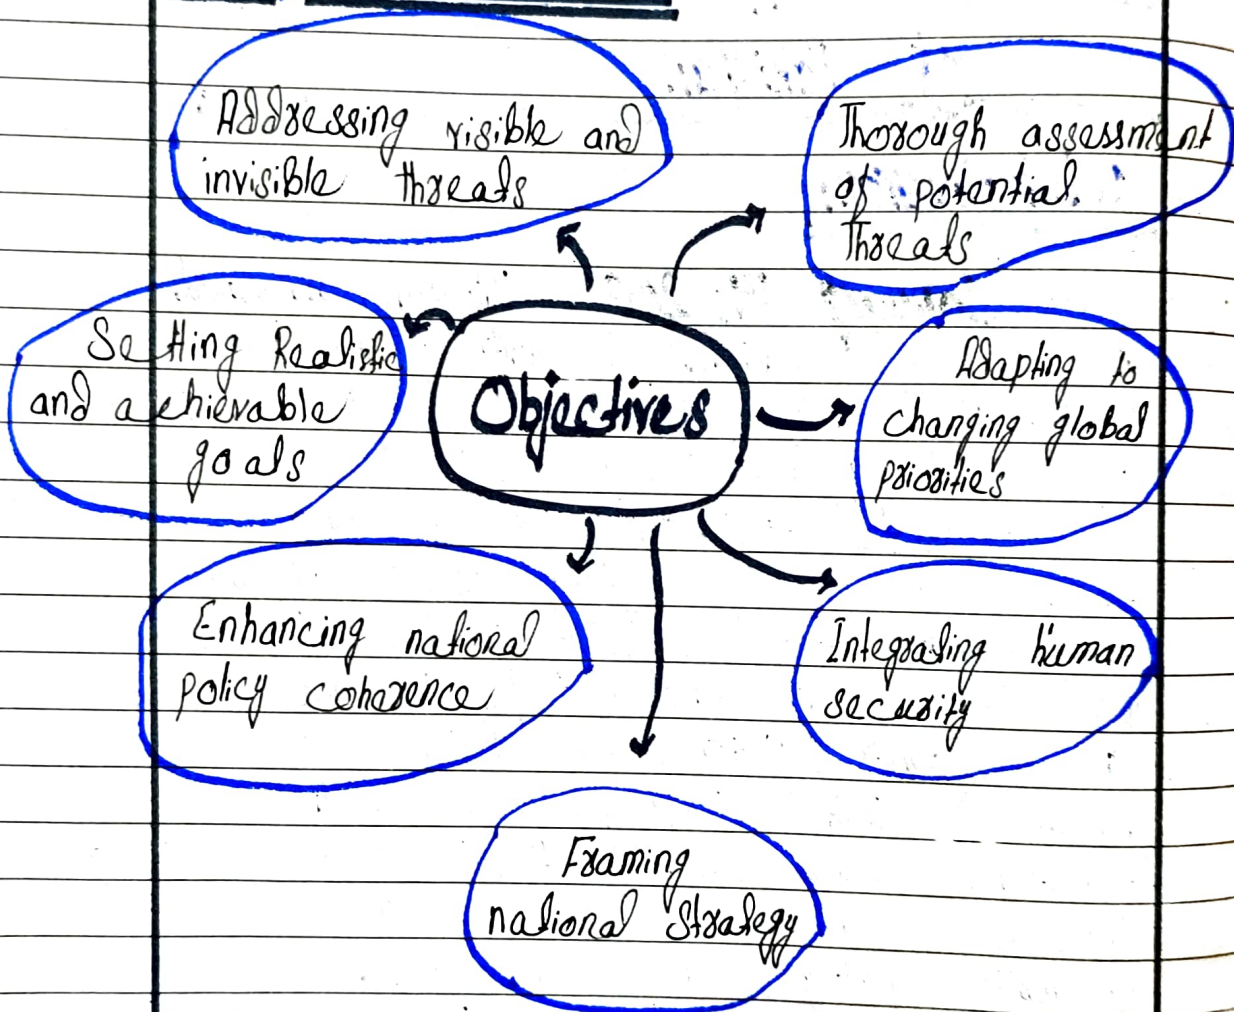 Addressing visible and
invisible threats
Thorough assessment
of potential
Threats
Setting Realistic
and achievable
goals
Objectives
Adapting to
changing global
priorities
Enhancing national
policy coherence
Integrating human
security
Framing
national strategy